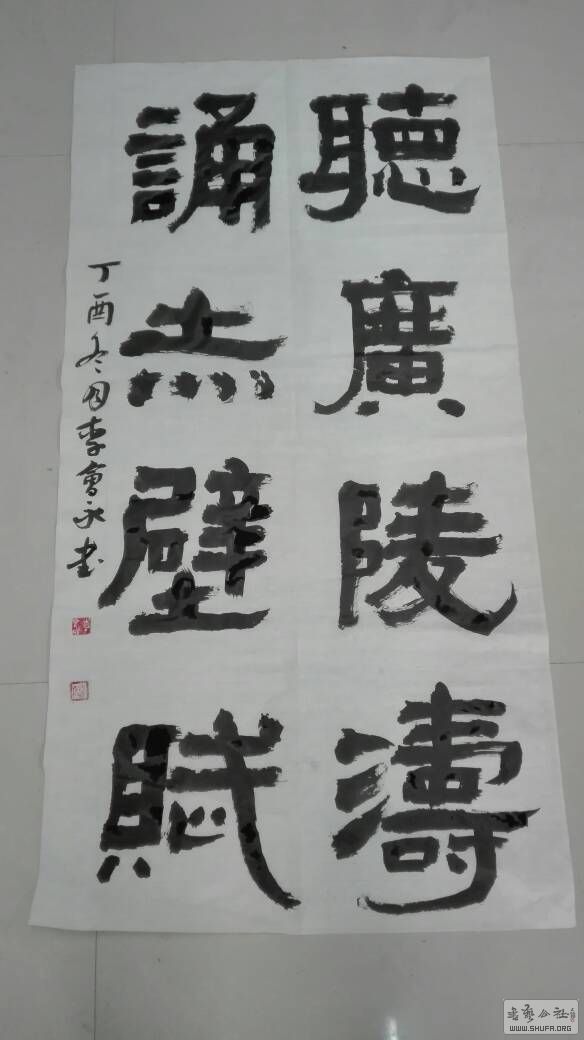 聽廣陵濤
誦赤壁賦
丁酉冬月李會永书
书艺公社
WWW.SHUFA.ORG